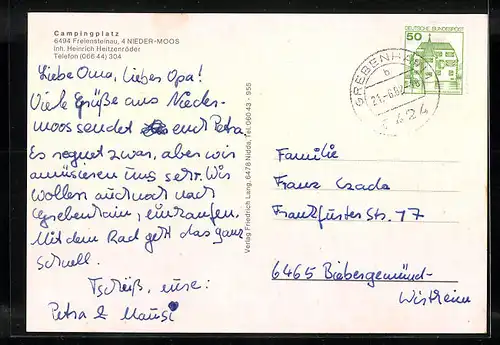 Campingplatz
6494 Freiensteinau, 4 NIEDER-MOOS
Inh. Heinrich Heitzenröder
Telefon (066 44) 304
Liebe Oma, liebes Opa!
Viele Grüße aus Nieder-
moos sendet euch Petra.
Es regnet zwar, aber wir
amüsieren uns sehr. Wir
wollen auch noch nach
Grebenhain, einkaufen.
Mit dem Rad geht das ganz
schnell.
Tschüß, eure:
Petra & Mausi
Verlag Friedrich Lang, 6478 Nidda, Tel. 060 43 - 955
DEUTSCHE BUNDESPOST
50
GREBENHA
b
21.-6.82
6424
Familie
Franz Czada
Frankfurter Str. 17
6465 Biebergemünd-
Wirtheim